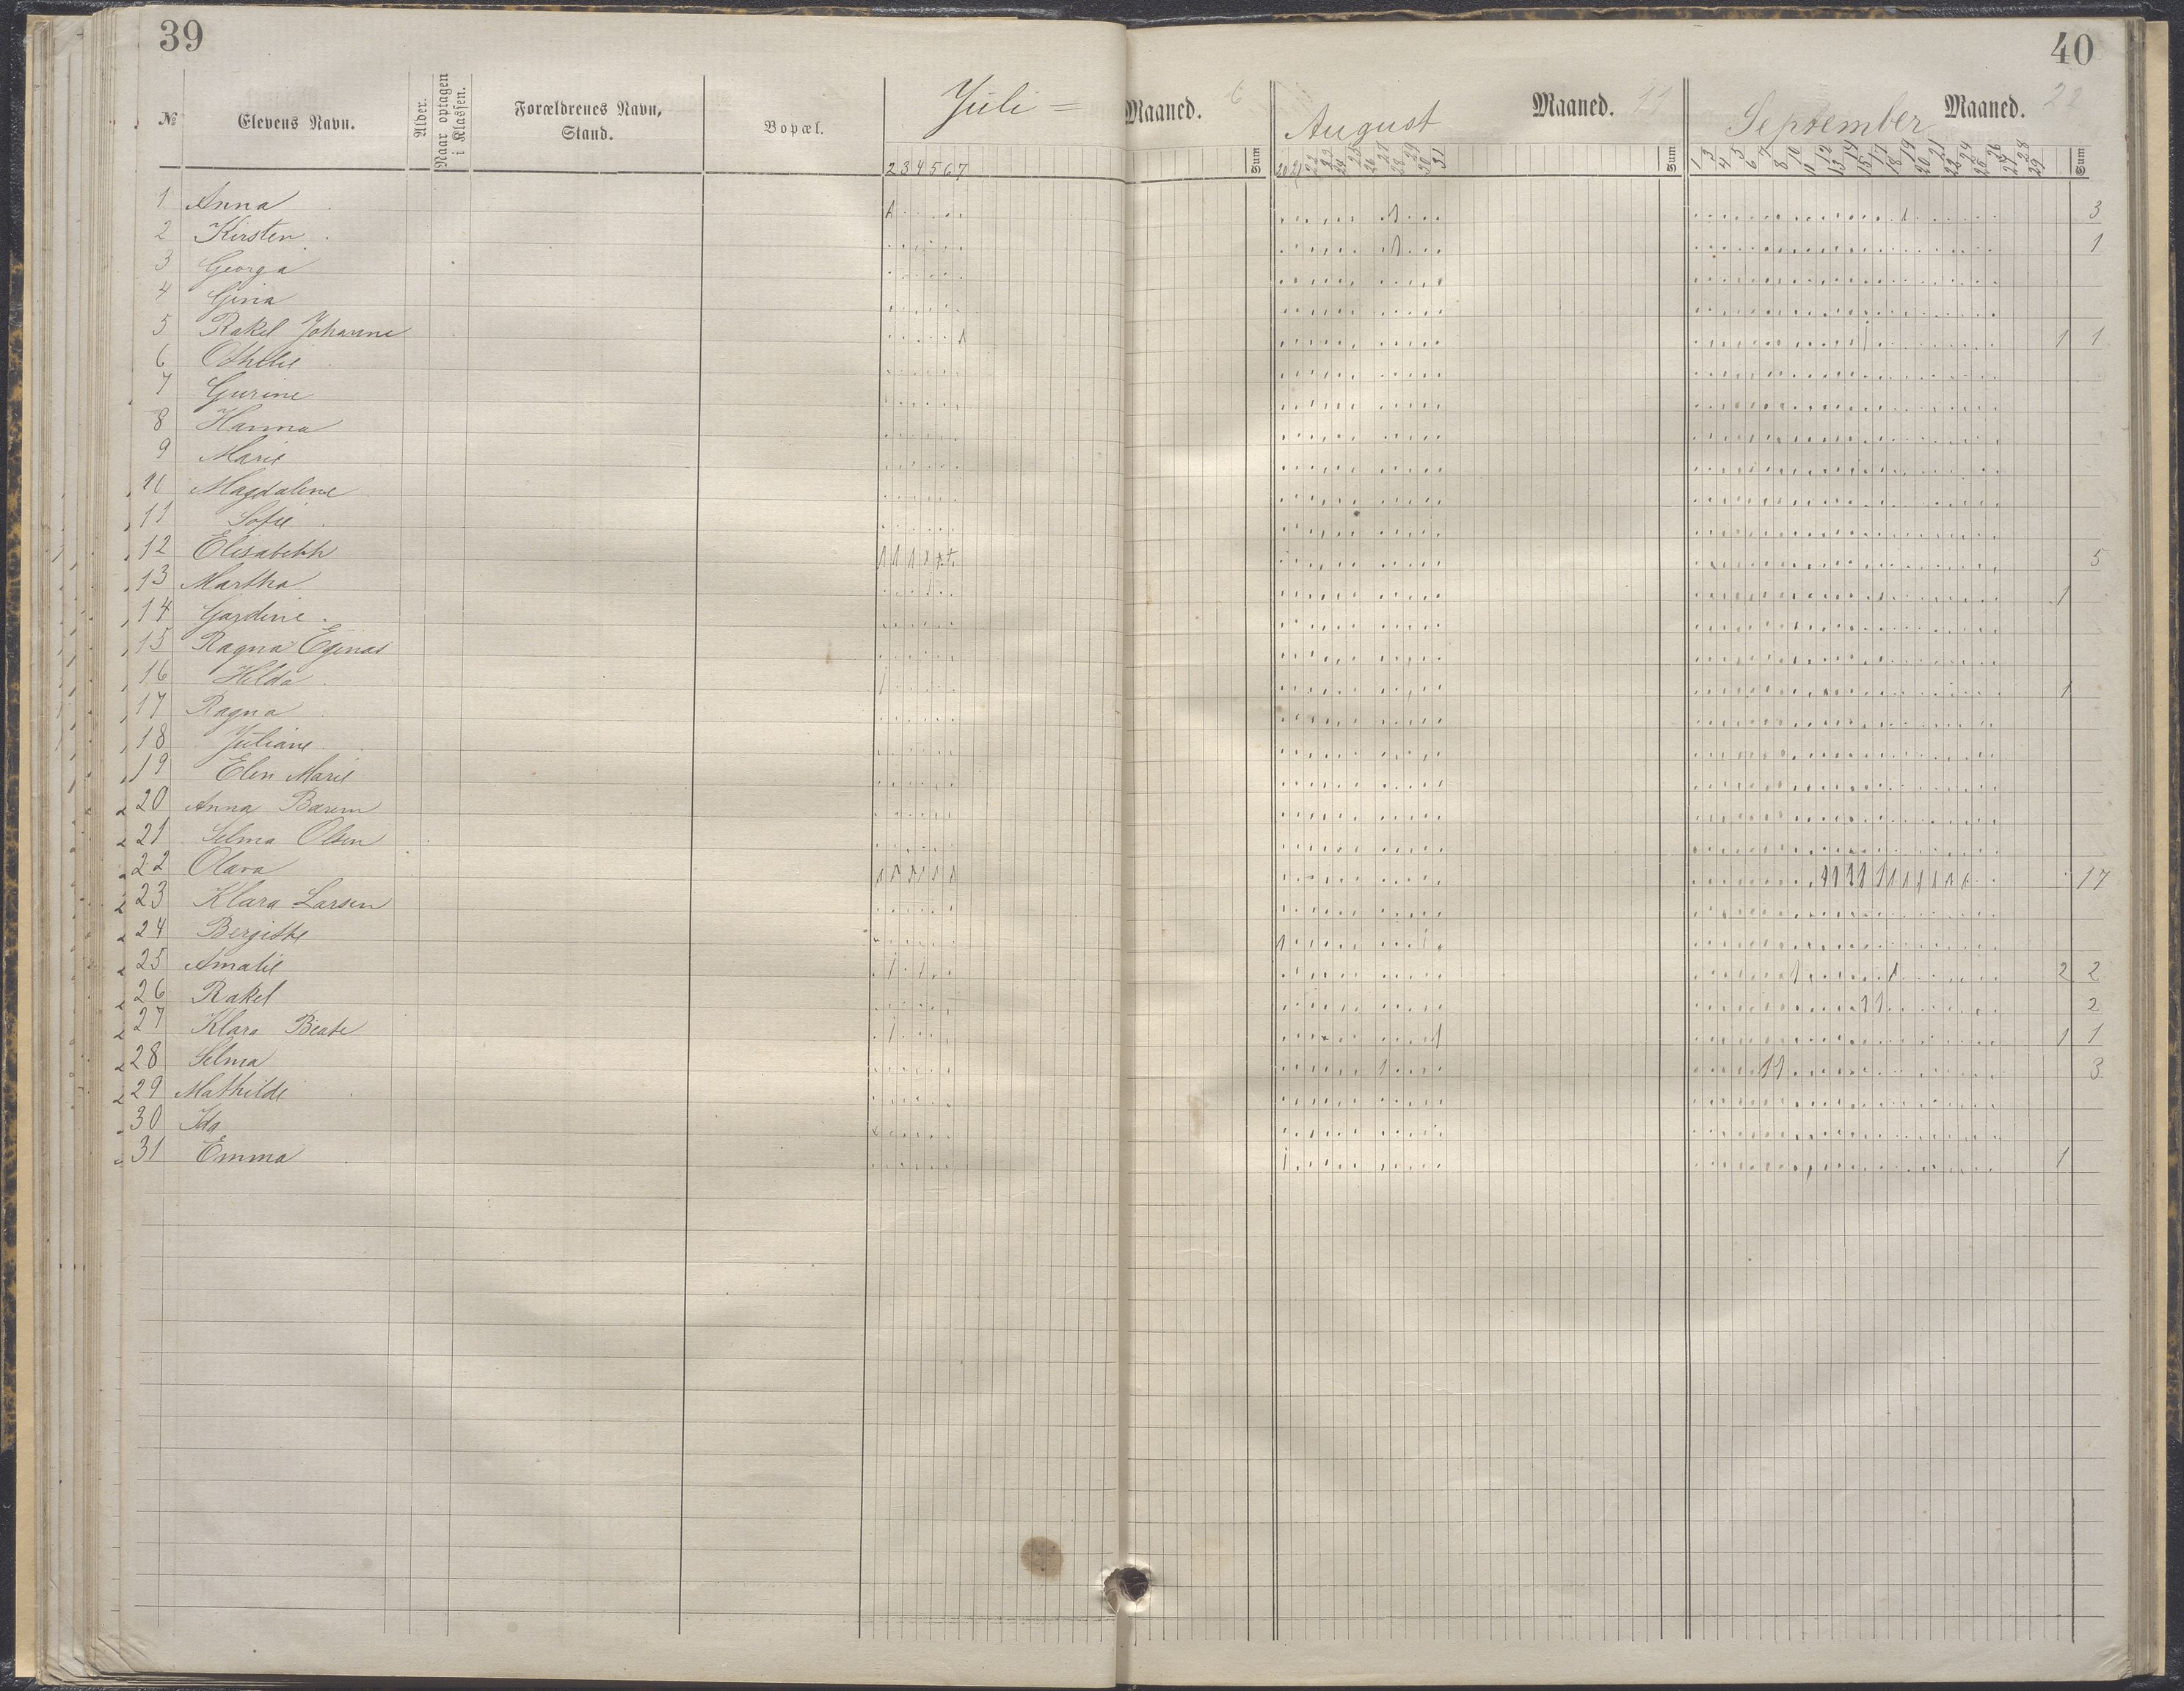 39
40
№
Elevens Navn.
Alder.
Naar optagen i Klassen.
Forældrenes Navn, Stand.
Bopæl.
Juli =
Maaned. 6
August
Maaned. 11
September
Maaned. 22
2 3 4 5 6 7
Sum
20 21 22 23 24 25 26 27 28 29 30 31
Sum
1 3 4 5 6 7 8 10 11 12 13 14 15 17 18 19 20 21 22 24 25 26 27 28 29
Sum
1 Anna 3
2 Kirsten 1
3 Georga
4 Gina
5 Rakel Johanne 1 1
6 Othilie
7 Gurine
8 Hanna
9 Marie
10 Magdalene
11 Sofie
12 Elisabeth 5
13 Martha 1
14 Gardine
15 Ragna Eginas
16 Hilda 1
17 Ragna
18 Juliane
19 Elen Marie
20 Anna Barem
21 Selma Olsen
22 Olava 17
23 Klara Larsen
24 Bergithe
25 Amalie 2 2
26 Rakel 2
27 Klara Beate 1 1
28 Selma 3
29 Mathilde
30 Ida
31 Emma 1